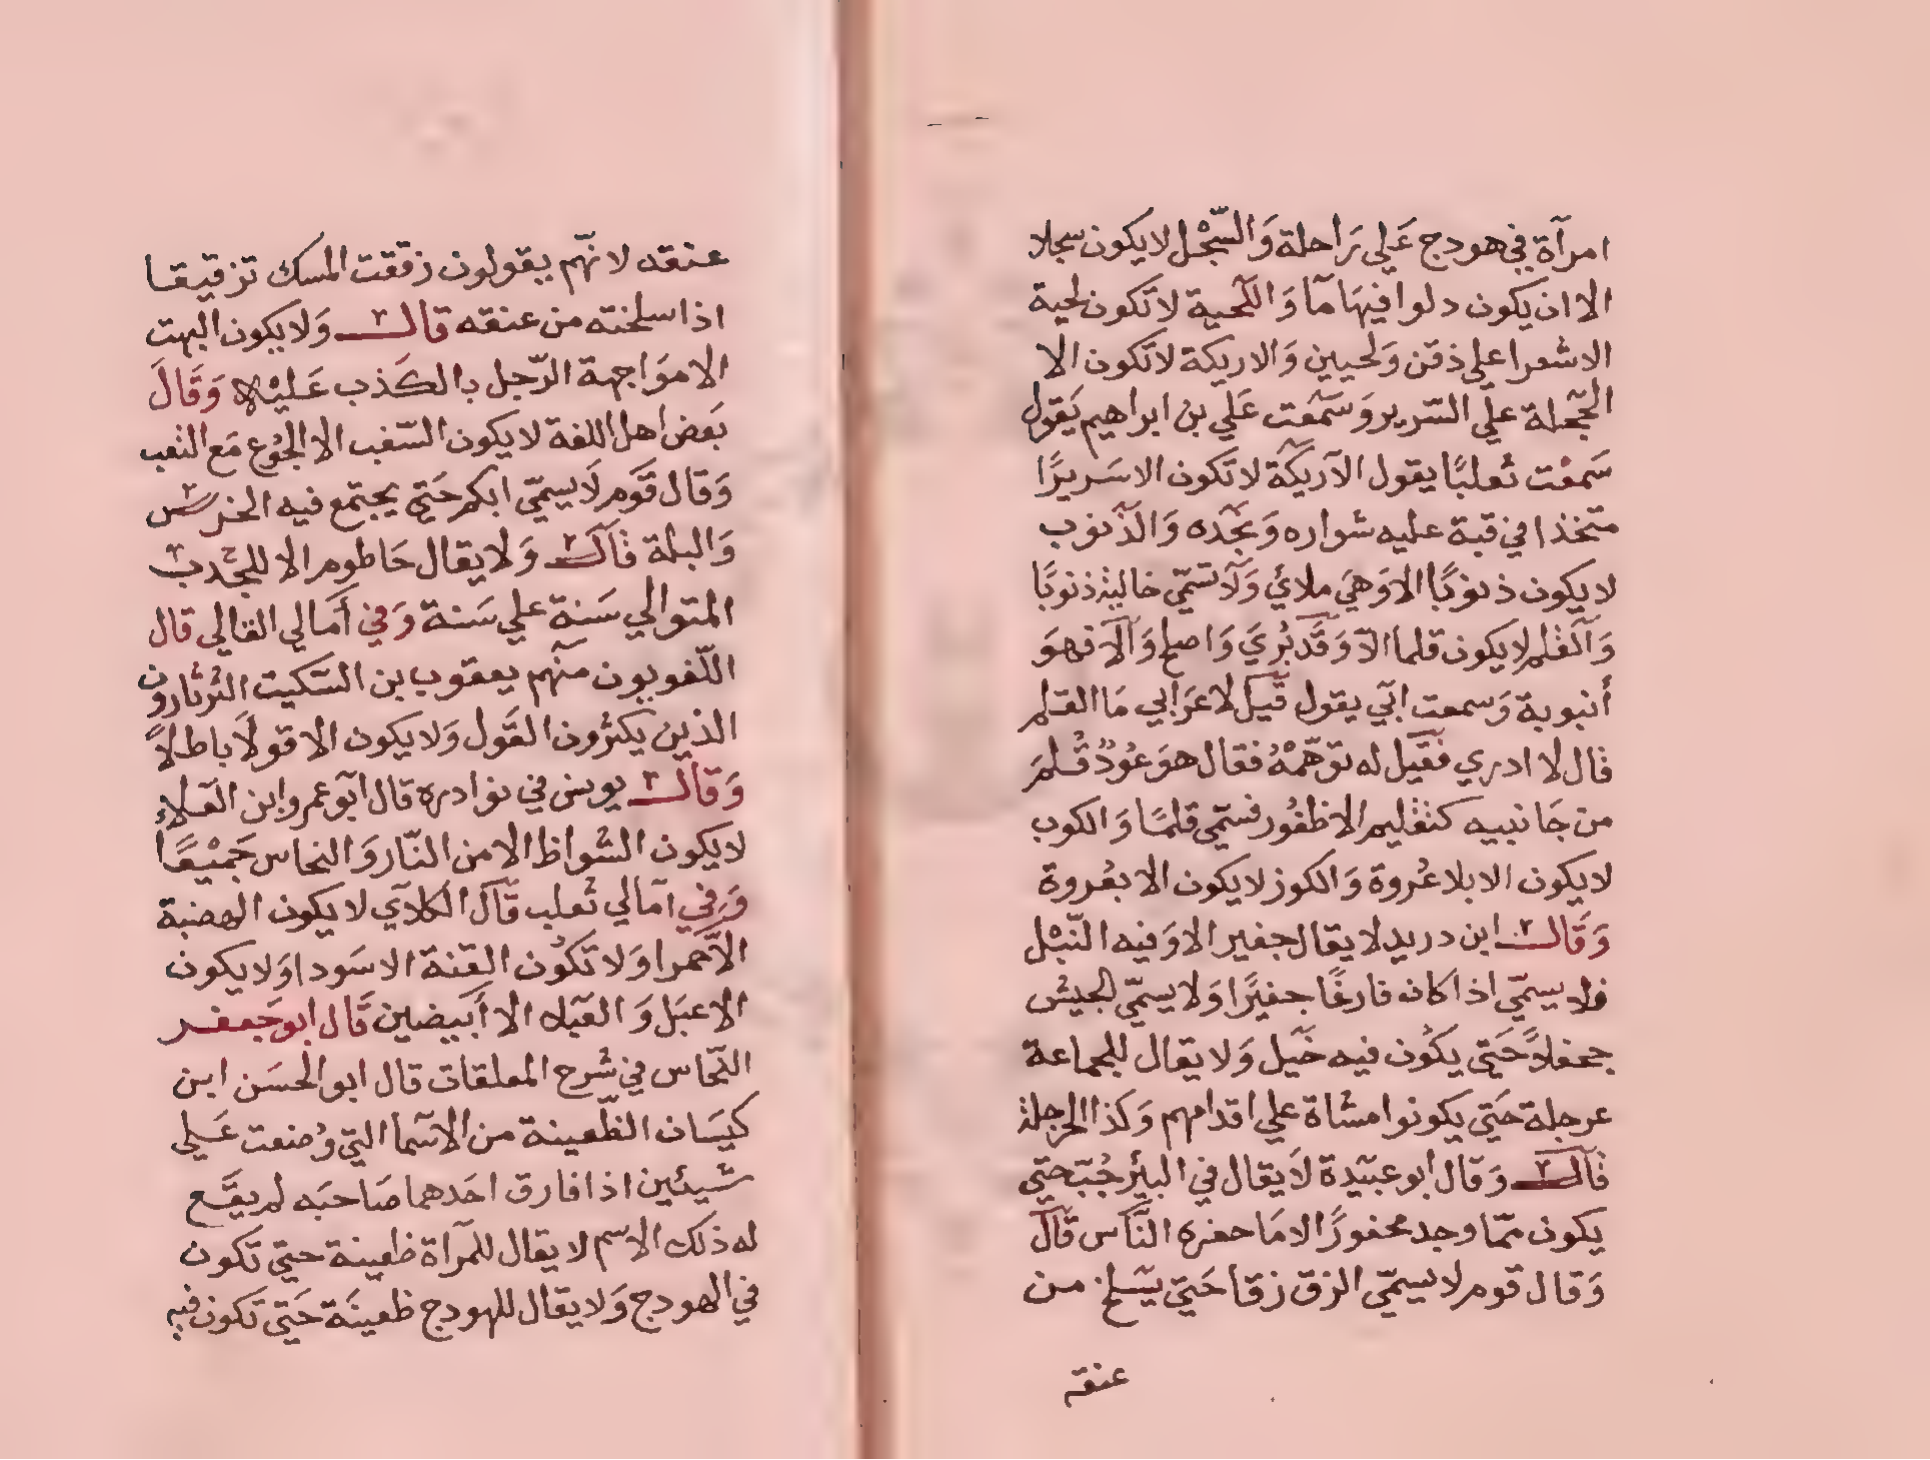 امرآة في هودج عَلي رَاحلة وَالسّجْل لا يكون سجلا
الا ان يكون دلوا فيهَا مآ وَاللّحية لا تكون لحية
الا شعرا علي ذقن وَلحيين وَالاريكة لا تكون الا
الحّجلة علي السّرير وَسَمعت عَلي بن ابراهيم يَقول
سَمعْت ثعلبًا يقول الآريكَة لا تكون الا سَريرًا
متخذا في قبة عليه شواره وَنجَده وَالذّنوب
لا يكون ذنوبًا الا وَهيَ ملائ وَلَا تسَمّي خالية ذنوبًا
وَالقلم لا يكون قلما الّا وَقَد بُريَ وَاصلح وَالّا فهوَ
أنبوبة وَسمعت ابّي يقول قيل لاعرَابي مَا القلم
قال لا ادري فقيل له توَهّمْهُ فقال هوَ عُودٌ قُلمَ
من جَانبيه كتقليم الاظفُور فسَمّي قلمًا وَالكوب
لا يكون الا بلا عُروة وَالكوز لا يكون الا بعُروة
وَقَال ابن دريد لا يقال جفير الا وَفيه النّبْل
فلا يسمّي اذا كانه فارغًا جفيرًا وَلا يسمّي لجيش
جحفلاً حَتي يكوُن فيه خَيل وَلا يقال للجماعة
عرجلة حَتي يكونوا مشاة علي اقدامهم وَكذا الحرجلة
قال وَقال ابو عبيَدة لاَ يقال في البئر جُبّ حتّي
يكون ممّا وجد محفورًا لا مَا حفره النَّاس قَالَ
وَقال قوم لا يسمّي الزق زقا حَتيّ يسَلخ من
عنقه
عنقه لانّهم يقولون زققت المسك تزقيقا
اذا سلخته من عنقه قال وَلا يكون البهت
الا موَاجهة الرّجل بالكَذب عَليْه وَقَالَ
بَعض اهل اللغة لا يكون السّغب الا الجُوع مَع التعب
وَقال قَوم لَا يسمّي ابكم حَتي يجتمع فيه الخرس
وَالبلة قال وَلا يقال حَاطوم الا للجُدب
المتوالي سَنة علي سَنة وَفي أمَالي القالي قال
اللّغويون منهم يعقوب بن السّكيت الثرثارون
الذين يكثرُون القَول وَلا يكون الا قولاَ باطلاً
وَقَال يونس في نوادره قال ابَو عمرو ابن العَلاء
لا يكون الشواظ الا من النّار وَالنحاس جَميْعًا
وَفي امَالي ثعلب قَال الكلابي لا يكون الهضبة
الاّ حمرا وَلا تكوُن القنة الا سَودا وَلا يكون
الاعبَل وَالعَبلا الا أَبيضين قَال ابو جَعفر
النّحاس في شرح المعلقات قال ابو الحسَن ابن
كيسَان الظّعينة من الاسَما التي وُضعت عَلي
شيئين اذا فارق احَدهما صَاحبَه لم يقَع
له ذلك الاسم لا يقال للمرآة ظعينة حتيّ تكون
في الهودج وَلا يقال للهودج ظعينَة حَتيّ تكون فيه